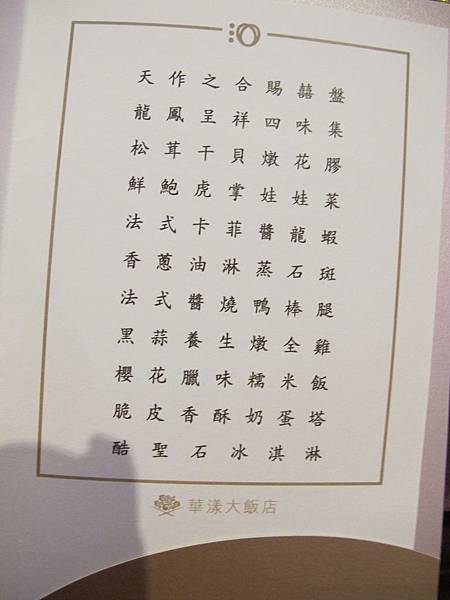 天作之合賜囍盤
龍鳳呈祥四味集
松茸干貝燉花膠
鮮鮑虎掌娃娃菜
法式卡菲醬龍蝦
香蔥油淋蒸石斑
法式醬燒鴨棒腿
黑蒜養生燉全雞
櫻花臘味糯米飯
脆皮香酥奶蛋塔
酷聖石冰淇淋
華漾大飯店